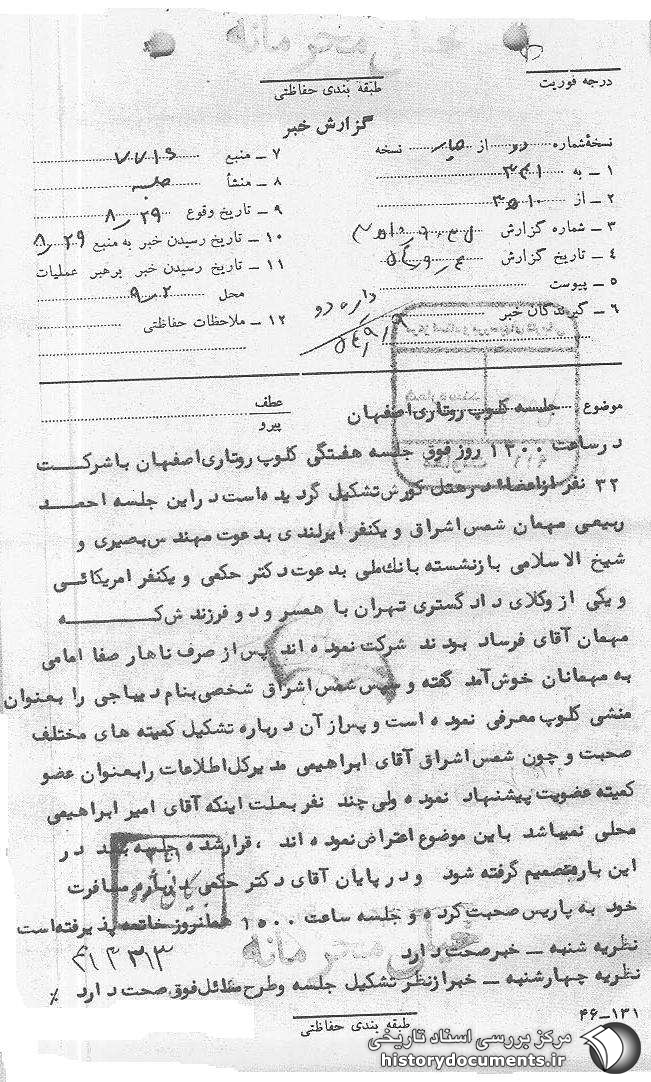 درجه فوریت
طبقه بندی حفاظتی
گزارش خبر
نسخهٔ شماره دو از چهار نسخه
۱ ـ به ۳۴۱
۲ ـ از ۱۰ه۳
۳ ـ شماره گزارش
۴ ـ تاریخ گزارش
۵ ـ پیوست
۶ ـ گیرندگان خبر
۷ ـ منبع ۷۷۱۶
۸ ـ منشأ جلسه
۹ ـ تاریخ وقوع ۸/۲۹
۱۰ ـ تاریخ رسیدن خبر به منبع ۸/۲۹
۱۱ ـ تاریخ رسیدن خبر برهبر عملیات
محل ۹/۲
۱۲ ـ ملاحظات حفاظتی
موضوع : جلسه کلوپ روتاری اصفهان
عطف
پیرو
درساعت ۱۳۰۰ روز فوق جلسه هفتگی کلوپ روتاری اصفهان باشرکت
۳۲ نفر از اعضاء در هتل کورش تشکیل گردیده است در این جلسه احمد
ربیعی مهمان شمس اشراق و یکنفر ایرلندی بدعوت مهندس بصیری و
شیخ الاسلامی بازنشسته بانک ملی بدعوت دکتر حکمی و یکنفر امریکائی
و یکی از وکلای دادگستری تهران با همسر و دو فرزندش که
مهمان آقای فرساد بودند شرکت نموده اند پس از صرف ناهار صفا امامی
به مهمانان خوش آمد گفته و سپس شمس اشراق شخصی بنام دیباجی را بعنوان
منشی کلوپ معرفی نموده است و پس از آن درباره تشکیل کمیته های مختلف
صحبت و چون شمس اشراق آقای ابراهیمی مدیرکل اطلاعات را بعنوان عضو
کمیته عضویت پیشنهاد نموده ولی چند نفر بعلت اینکه آقای امیر ابراهیمی
محلی نمیباشد باین موضوع اعتراض نموده اند ، قرارشده جلسه بعد در
این باره تصمیم گرفته شود و در پایان آقای دکتر حکمی درباره مسافرت
خود به پاریس صحبت کرده و جلسه ساعت ۱۵۰۰ همانروز خاتمه پذیرفته است
نظریه شنبه ـ خبر صحت دارد
نظریه چهارشنبه ـ خبر از نظر تشکیل جلسه و طرح مسائل فوق صحت دارد %
۴۶-۱۳۱
طبقه بندی حفاظتی
مرکز بررسی اسناد تاریخی
historydocuments.ir